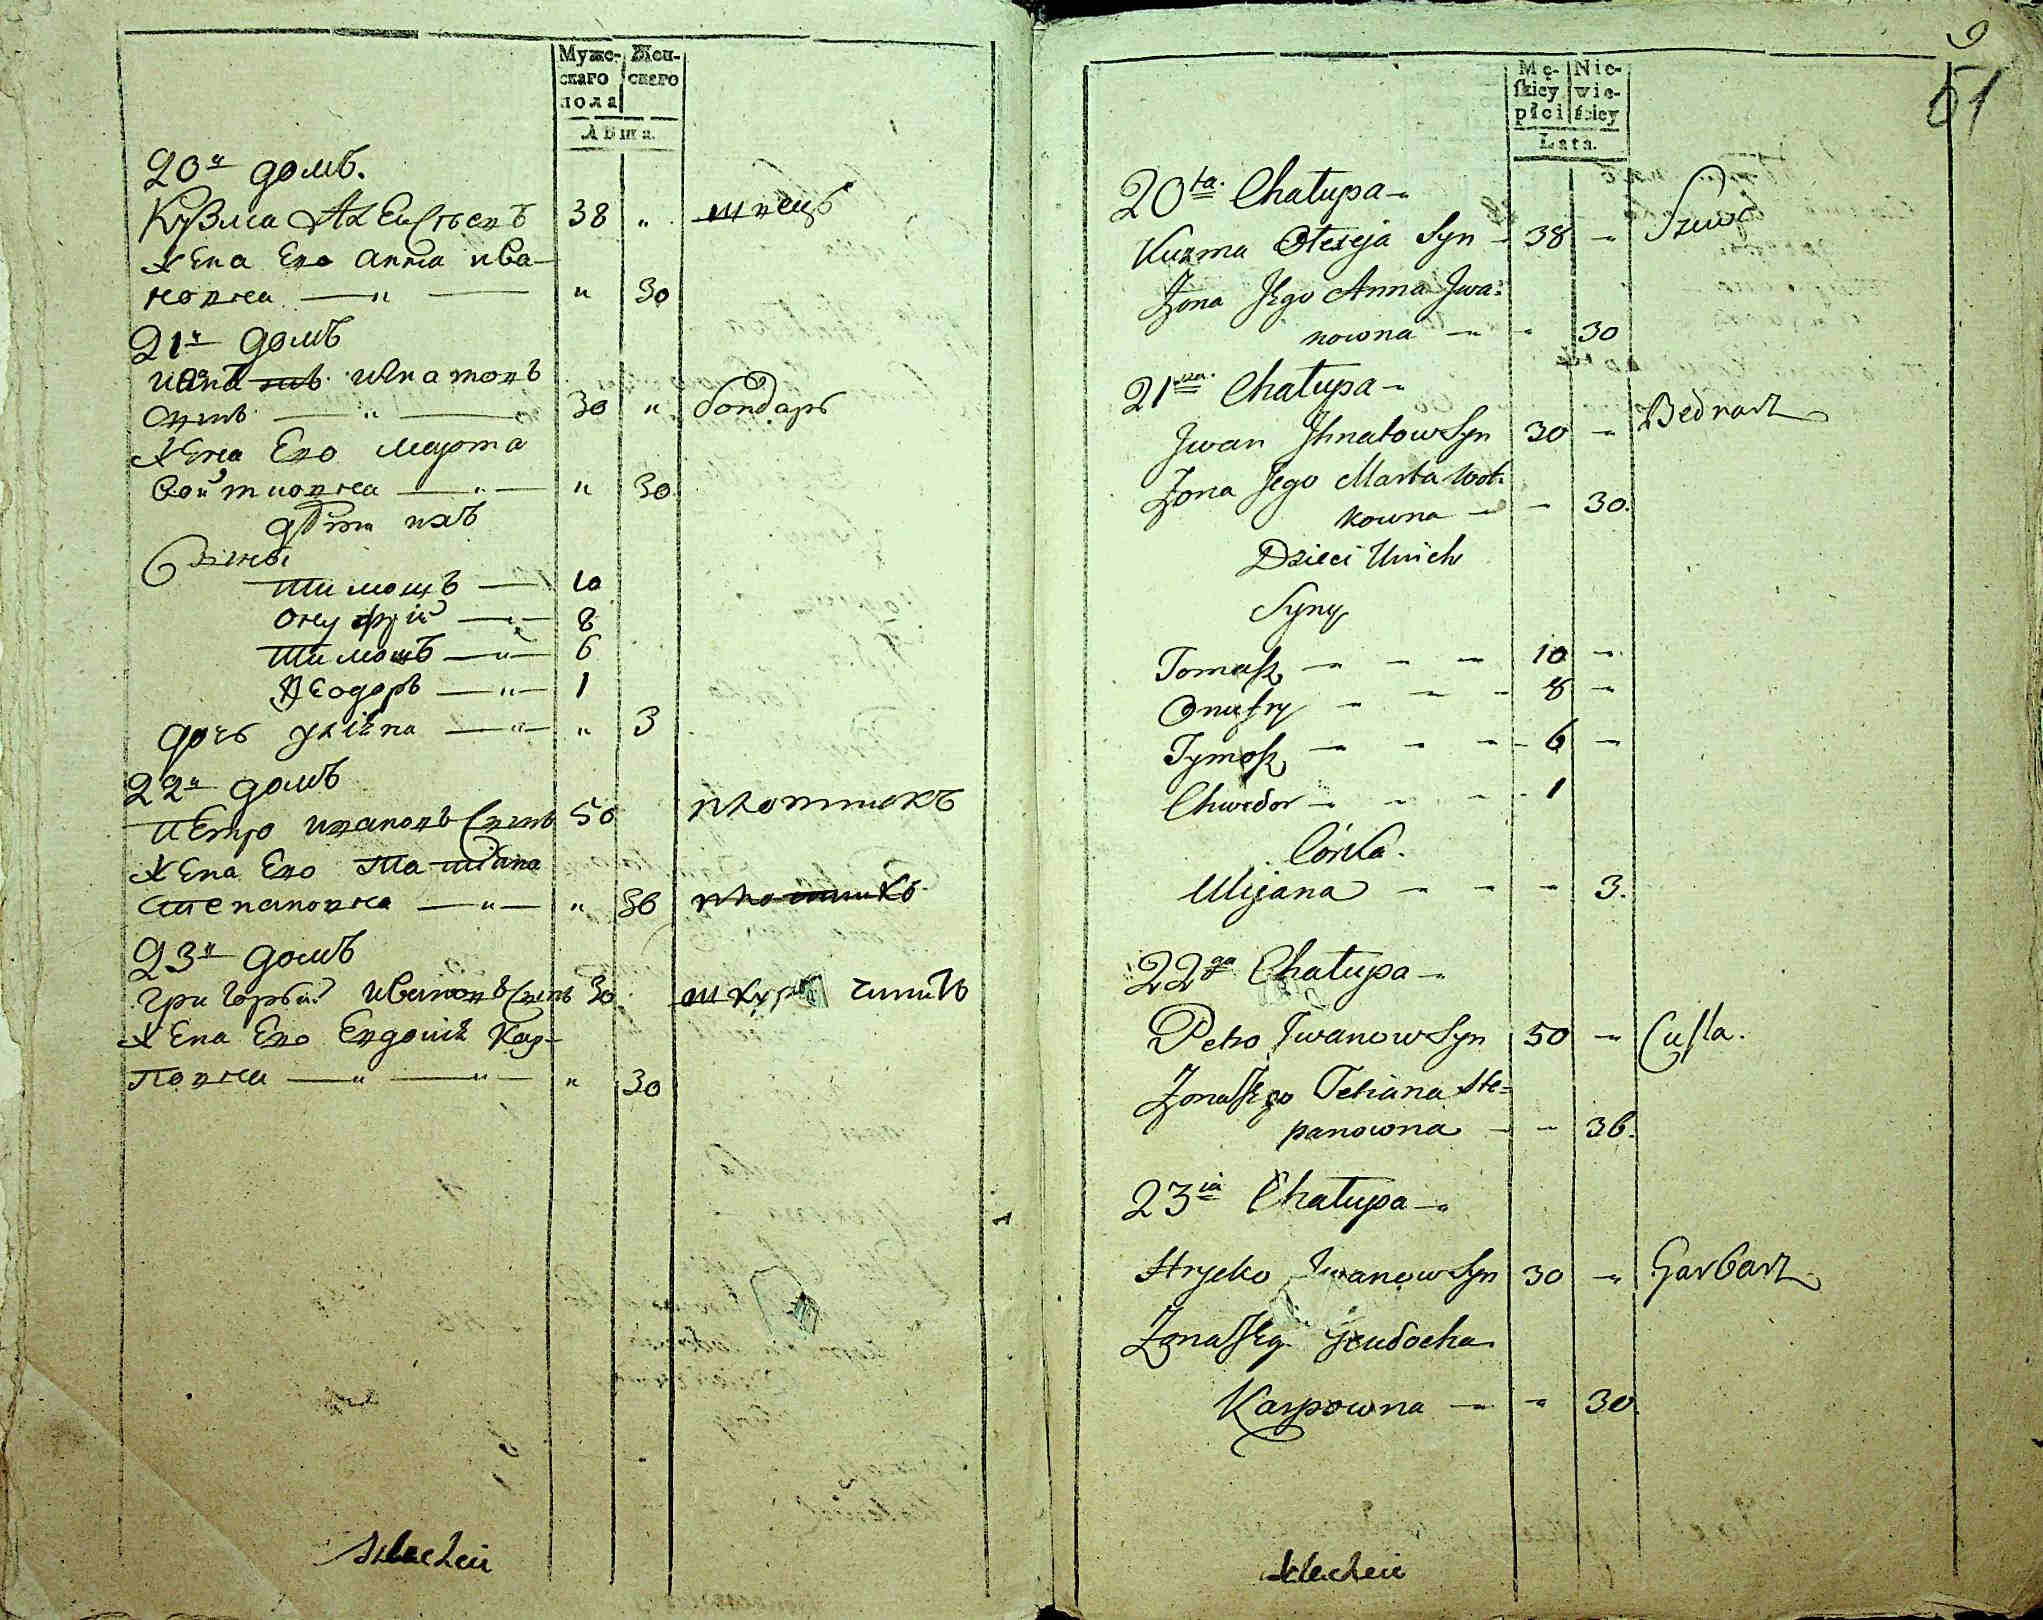 Муже-
скаго
пола
Жен-
скаго
Лѣта.
20й домъ.
Кузма Алексѣевъ 38 " швецъ
Жена Его Анна ива-
новна — " — " 30
21й домъ
иванъ игнатовъ
сынъ — " — 30 " бондарь
Жена Его марта
войтковна — " — " 30
дѣти ихъ
Сыны
Тимошъ — 10
онуфрій — " — 8
Тимошъ — " — 6
Ѳеодоръ — " — 1
дочь улiяна — " — " 3
22й домъ
Петро ивановъ Сынъ 50 плотникъ
Жена Его Татiана
степановна — " — " 36 плотникъ
23й домъ
Григорѣй ивановъ Сынъ 30 шкуры чинитъ
Жена Его Евдокiя Кар-
повна — " — " — " 30
szlachcic
9
51
Mę-
skiey
płci
Nie-
wie-
ściey
Lata.
20ta Chałupa
Kuzma Olexeja Syn 38 - Szwc
Żona Jego Anna Iwa=
nowna - - 30
21wsza Chałupa
Iwan Ihnatow Syn 30 - Bednarz
Żona Jego Marta Woł=
kowna - - 30.
Dzieci Unich
Syny
Tomasz - - - 10 -
Onufry - - - 8 -
Tymosz - - - 6 -
Chwedor - - - 1
Córka.
Ulijana - - - 3.
22ga Chałupa
Petro Iwanow Syn 50 - Cieśla.
Żona Jego Tetiana Ste=
panowna - - 36.
23cia Chałupa
Hryćko Iwanow Syn 30 - Garbarz
Żona Jego Jeudocha
Karpowna - - 30.
szlachcic